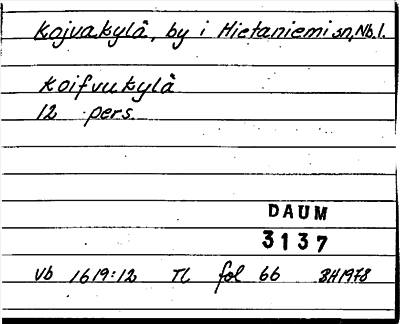 Kojvakylä, by i Hietaniemi sn, Nb.l.
Koifvukylä
12 pers.
DAUM
3137
Vb 1619:12 TL fol 66 BH1978